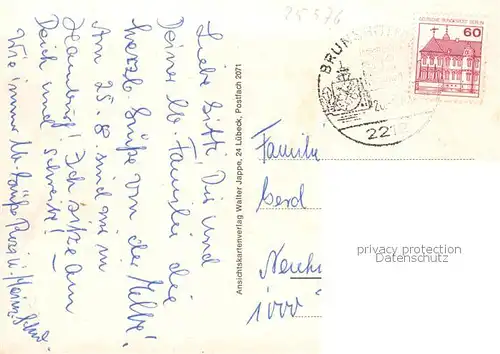 25576
Liebe Gitti! Dir und
Deiner lb. Familie die
herzl. Grüße von der
Am 25. 8. sind wir in
Hamburg! Ich sitze am
Deich und schreibe! –
Wie immer lb. Grüße
Ansichtskartenverlag Walter Jappe, 24 Lübeck, Postfach 2071
BRUNSBÜTTEL
DEUTSCHE BUNDESPOST BERLIN
60
2212
Familie
Gerd
1000
privacy protection
Datenschutz